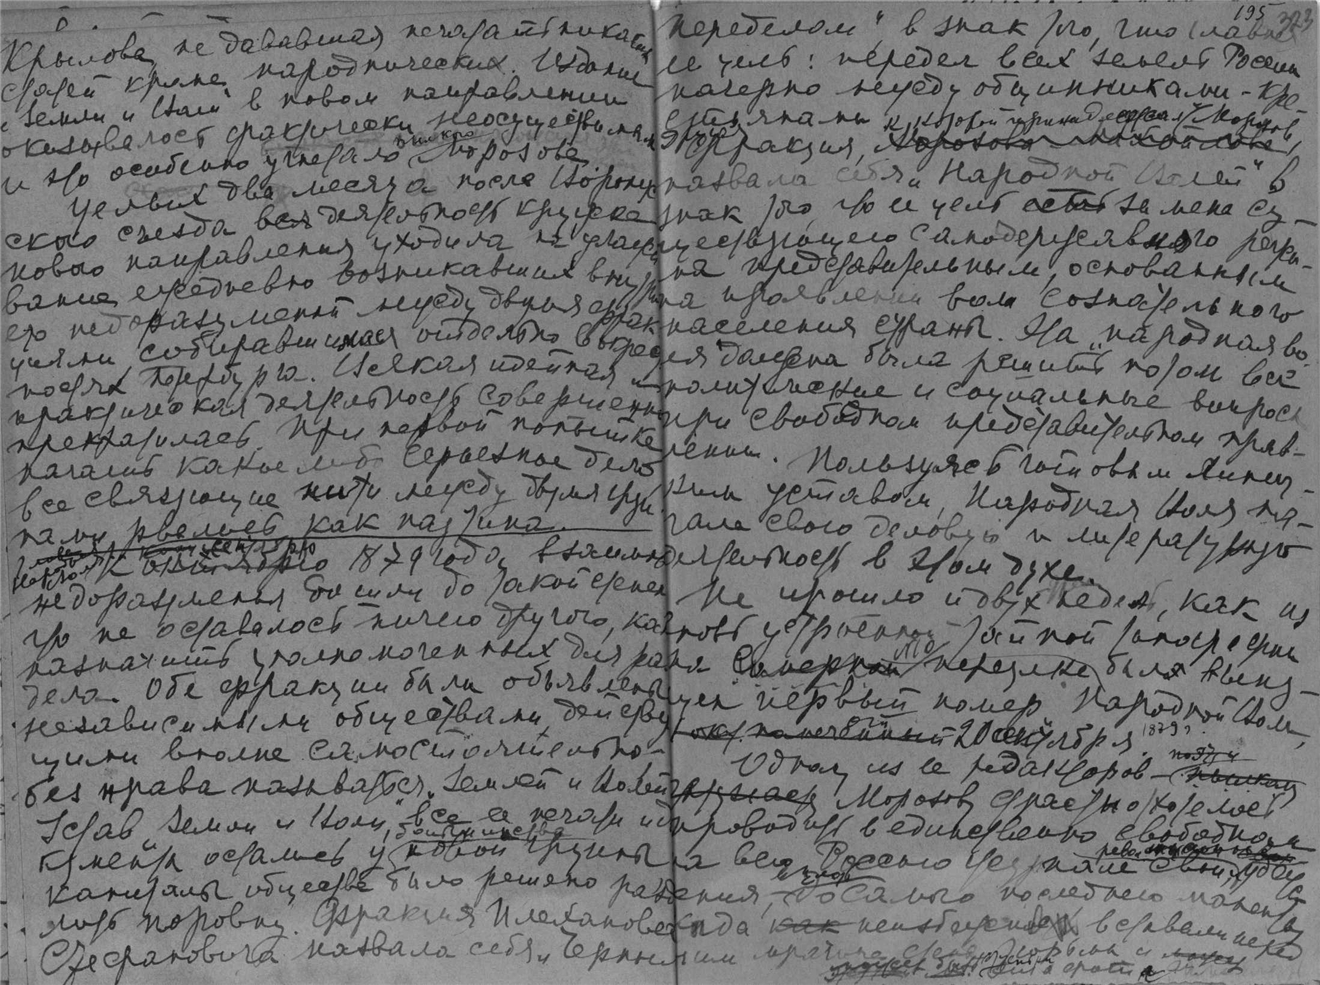 Крылова, не дававшая печатать никаких
статей кроме народнических. Издание
"Земли и Воли" в новом направлении
оказывалось фактически неосуществимым
и это особенно угнетало Морозова.
Целых два месяца после Воронеж-
ского съезда вся деятельность кружка
нового направления уходила на улажи-
вание ежедневно возникавших внутри
его недоразумений между двумя фрак-
циями собиравшимися отдельно в
Петербурга. Всякая идейная и
практическая деятельность совершенно
прекратилась. При первой попытке
начать какое либо серьезное дело
все связующие нити между двумя груп-
пами рвались как паутина.
К сентябрю 1879 года взаимные
недоразумения дошли до такой степени
что не оставалось ничего другого, как
назначить уполномоченных для раз
дела. Обе фракции были объявлены
независимыми обществами, действу
щими вполне самостоятельно,
без права называться "Землей и Волей".
Устав "Земли и Воли", все ее печати и до
кументы остались у большинства новой группы
капиталы общества было решено разде
лить поровну. Фракция Плеханова и
Стефановича назвала себя "Черным
195 323
переделом" в знак того, что главная
ее цель: передел всех земель России
начерно между общинниками-кре-
стьянами
Фракция, к которой принадлежал Морозов,
назвала себя "Народной Волей" в
знак того, что ее цель замена су-
ществующего самодержавного режи-
ма представительным, основанным
на проявлении воли сознательного
населения страны. Эта "народная во
ля" должна была решить потом все
политические и социальные вопросы
при свободном представительном прав-
лении. Пользуясь готовым Липец-
ким уставом, Народная Воля на-
чала свою деловую и литературную
деятельность в этом духе.
Не прошло и двух недель, как из
новь устроенной тайной типографии
на Саперном переулке был выпу-
щен первый номер Народной Воли,
помеченный 20 сентября 1879 г.
Одному из ее редакторов - поэту
Морозову страстно хотелось
проводить в единственно свободном
на всю Россию журнале свои
до самого последнего момента
неизбежно вставали перед